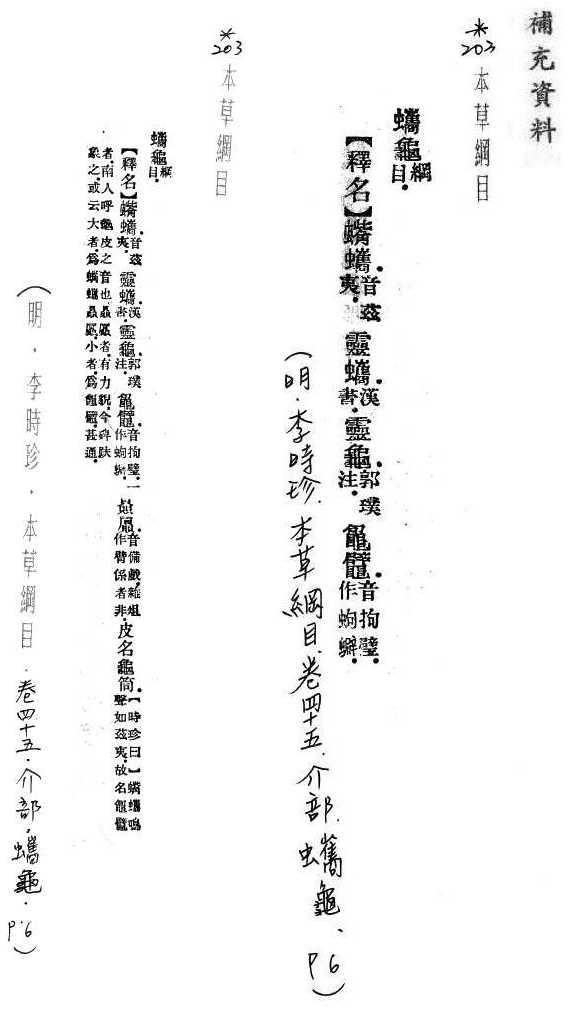 補充資料
*202
本草綱目
蠵龜綱目.
【釋名】蟕蠵音茲夷.靈蠵漢書.靈龜郭璞注.鼊.音拘璧.作蚼
(明.李時珍.本草綱目.卷四十五.介部.蠵龜、P6)
*203
本草綱目
蠵龜綱目.
【釋名】蟕蠵音茲夷.靈蠵漢書.靈龜郭璞注.鼊.音拘璧.一作蚼 贔屓.音備戲.雜俎作臂係者非.皮名龜筒.【時珍曰】蟕蠵鳴聲如茲夷.故名鼊
者.南人呼龜皮之音也.贔屓者.有力貌.今碑趺
象之.或云大者.為蟕蠵贔屓.小者.為鼊.甚通.
(明.李時珍.本草綱目.卷四十五.介部.蠵龜.P.6)